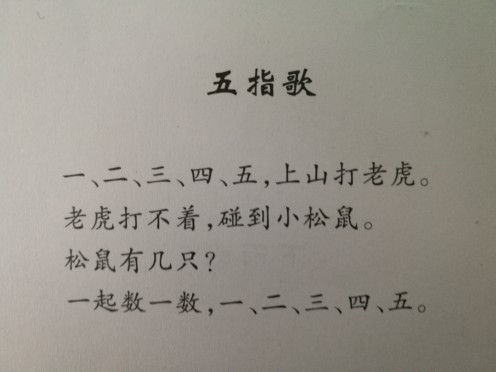 五指歌
一、二、三、四、五，上山打老虎。
老虎打不着，碰到小松鼠。
松鼠有几只？
一起数一数，一、二、三、四、五。